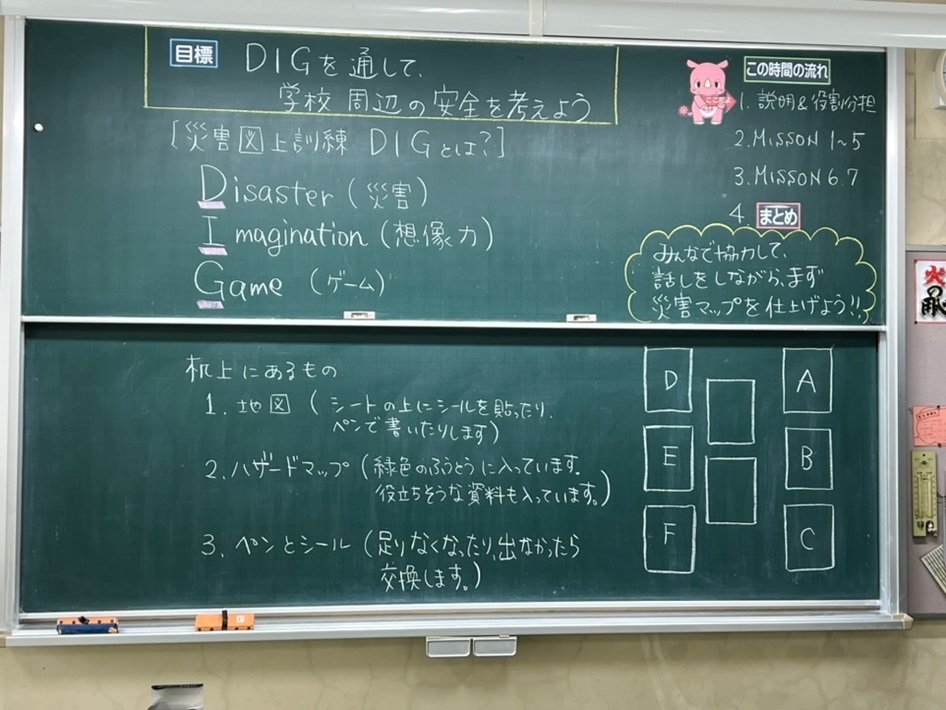 目標 DIGを通して、
学校周辺の安全を考えよう
[災害図上訓練 DIGとは?]
Disaster (災害)
Imagination (想像力)
Game (ゲーム)
この時間の流れ
1. 説明&役割分担
2. MISSON 1~5
3. MISSON 6.7
4. まとめ
みんなで協力して、
話しをしながら、まず
災害マップを仕上げよう!!
机上にあるもの
1. 地図 (シートの上にシールを貼ったり、
ペンで書いたりします)
2. ハザードマップ (緑色のふうとうに入っています。
役立ちそうな資料も入っています。)
3. ペンとシール (足りなくなったり、出なかったら
交換します。)
D
A
E
B
F
C
火の